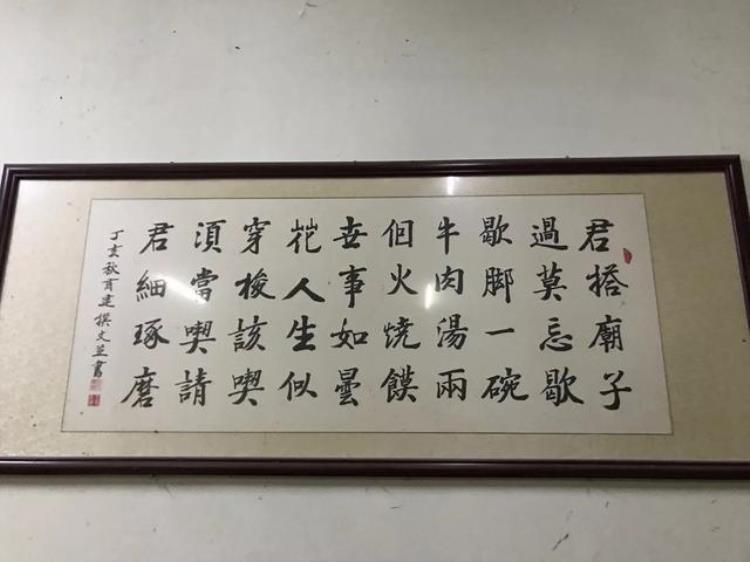 君搭廟子
過莫忘歇
歇脚一碗
牛肉湯兩
佪火燒饃
世事如曇
花人生似
穿梭該喫
須當喫請
君細琢磨
丁亥秋育建撰文並書